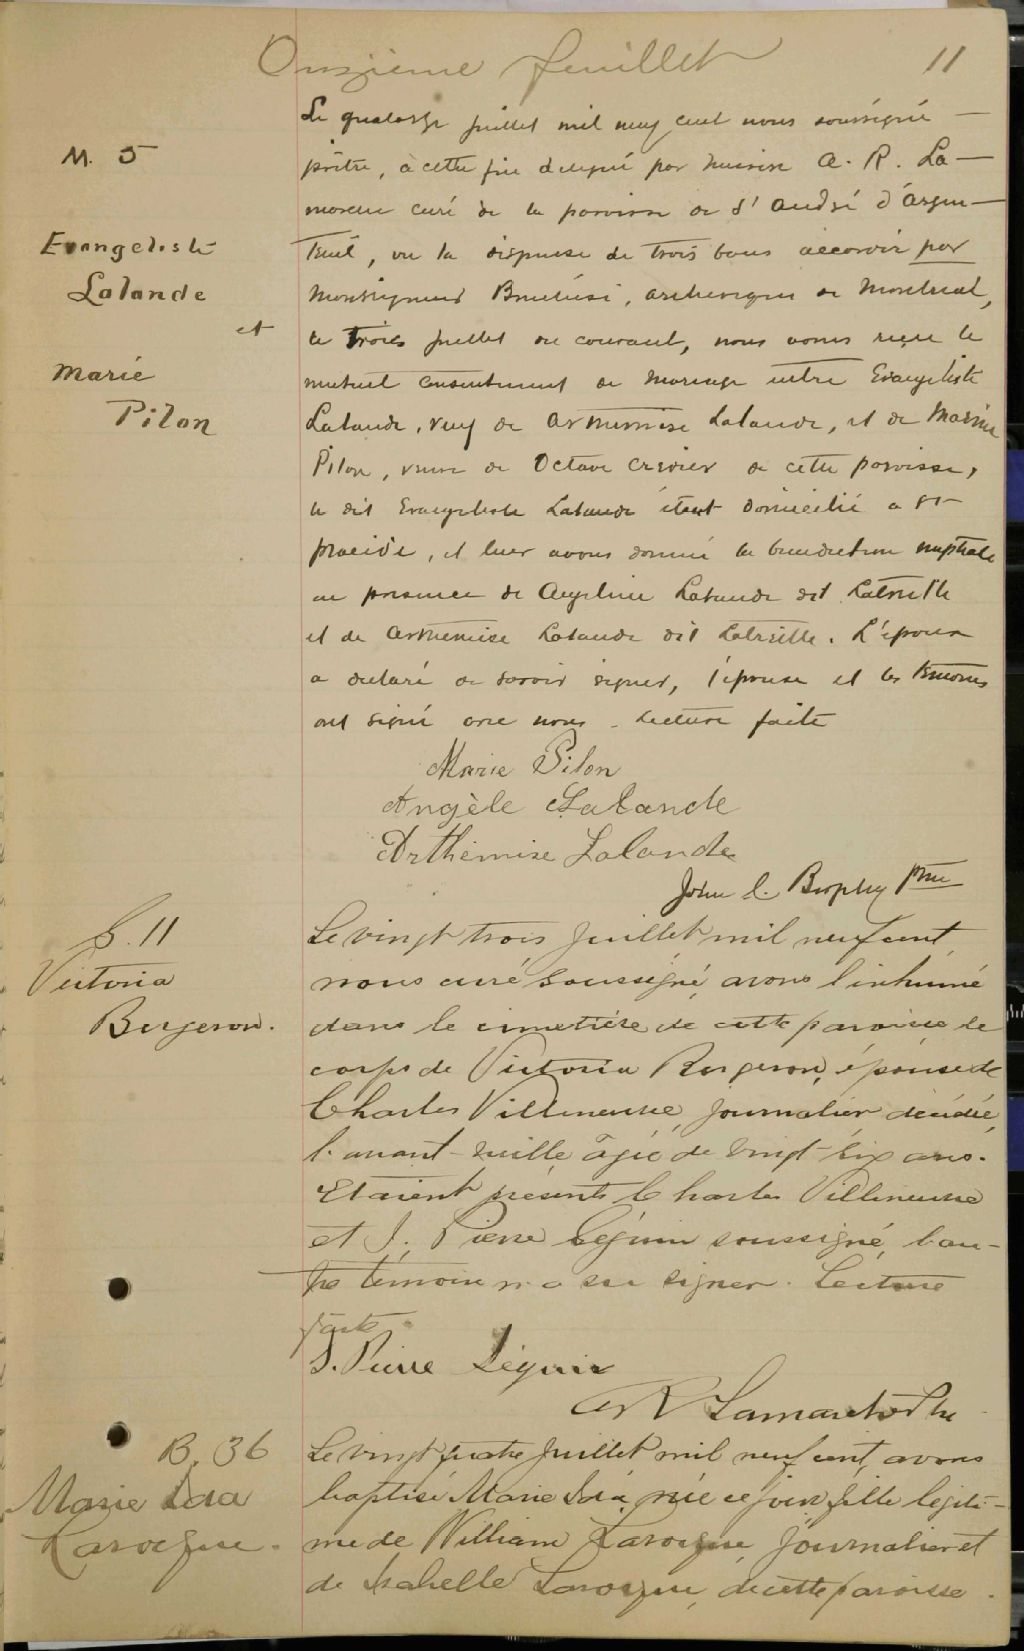 Onzième feuillet 11
M. 5
Evangeliste
Lalande
et
Marie
Pilon
Le quatorze juillet mil neuf cent nous soussigné —
prêtre, à cette fin délégué par messire A. R. La—
marche curé de la paroisse de St André d'Argen—
teuil, vu la dispense de trois bans accordée par
Monseigneur Bruchési, archevêque de Montréal,
le trois juillet du courant, nous avons reçu le
mutuel consentement de mariage entre Evangeliste
Lalande, veuf de Arthémise Lalande, et de Marie
Pilon, veuve de Octave Crevier de cette paroisse,
le dit Evangeliste Lalande étant domicilié à St
Placide, et leur avons donné la bénédiction nuptiale
en présence de Angeline Lalande dit Latreille
et de Arthémise Lalande dit Latreille. L'époux
a déclaré ne savoir signer, l'épouse et les témoins
ont signé avec nous. Lecture faite
Marie Pilon
Angèle Lalande
Arthémise Lalande
John C. Brophy Ptre
S. 11
Victoria
Bergeron.
Le vingt trois Juillet mil neuf cent
nous curé soussigné, avons l'inhumé
dans le cimetière de cette paroisse le
corps de Victoria Bergeron, épouse de
Charles Villeneuve, journalier décédée,
l'avant-veille âgée de vingt-six ans.
Etaient présents Charles Villeneuve
et J. Pierre Séguin soussigné, l'au-
tre témoin n'a su signer. Lecture
faite
J. Pierre Séguin
A R Lamarche Ptre
B. 36
Marie Ida
Larocque.
Le vingt quatre Juillet mil neuf cent, avons
baptisé Marie Ida, née ce jour fille légiti-
me de William Larocque, journalier et
de Isabelle Larocque, de cette paroisse.